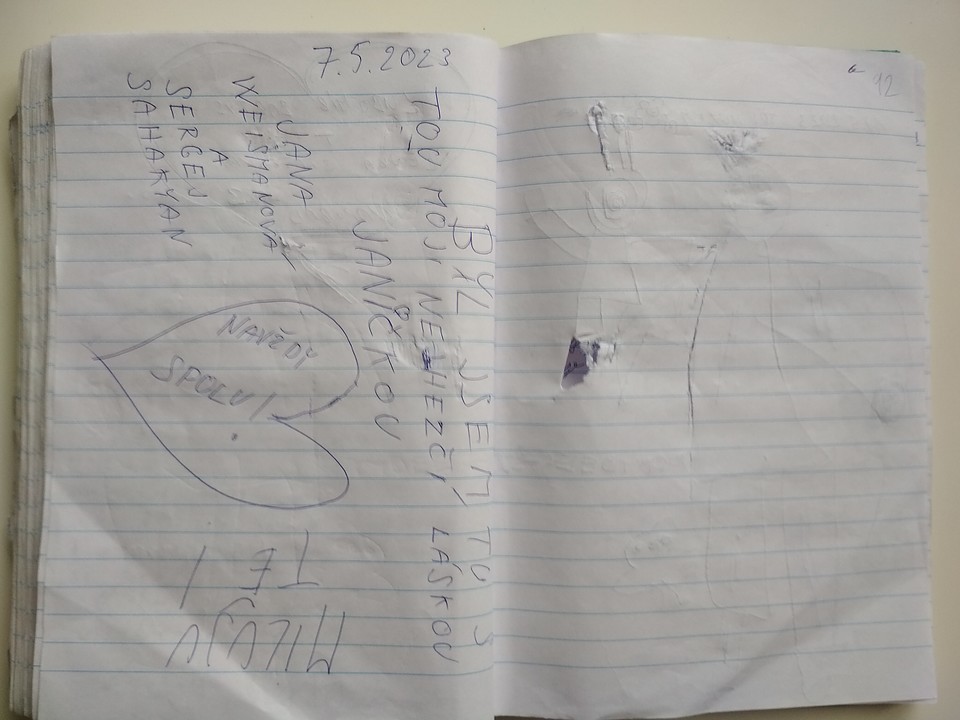 7.5.2023
BYL JSEM TU S
TOU MOJÍ NEJHEZČÍ LÁSKOU
JANIČKOU
JANA
WEISMANOVÁ
A
SERGEJ
SAHAKYAN
NAVŽDY
SPOLU!
MILUJU
TĚ!
12